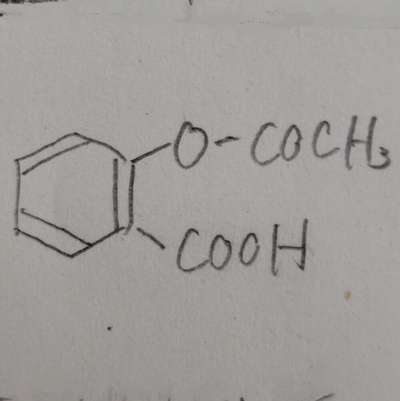 O-COCH₃
COOH